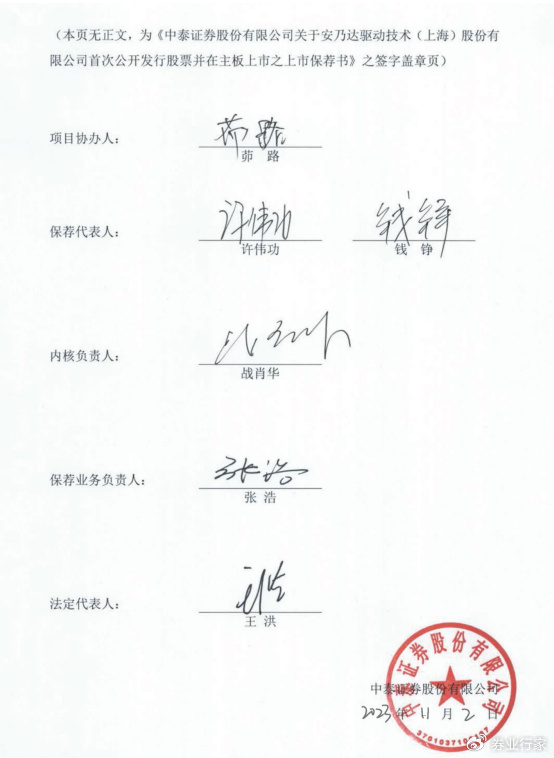 （本页无正文，为《中泰证券股份有限公司关于安乃达驱动技术（上海）股份有
限公司首次公开发行股票并在主板上市之上市保荐书》之签字盖章页）
项目协办人：
茆路
茆 路
保荐代表人：
许伟功 钱铮
许伟功 钱 铮
内核负责人：
战肖华
保荐业务负责人：
张浩
张 浩
法定代表人：
王 洪
中泰证券股份有限公司
中泰证券股份有限公司
2023年 11月 2日
券业行家